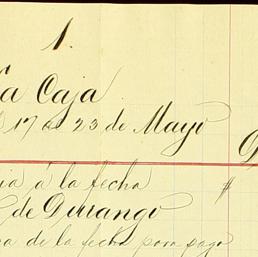 1.
la Caja
17 a 23 de Mayo
ia á la fecha $
de Durango
de la fecha para pago